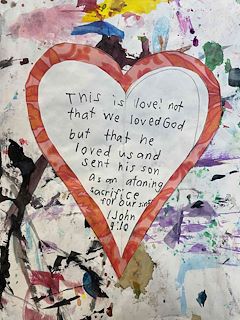 This is love! not
that we loved God
but that he
loved us and
sent his son
as an atoning
sacrifice
for our sins
1 John
4:10